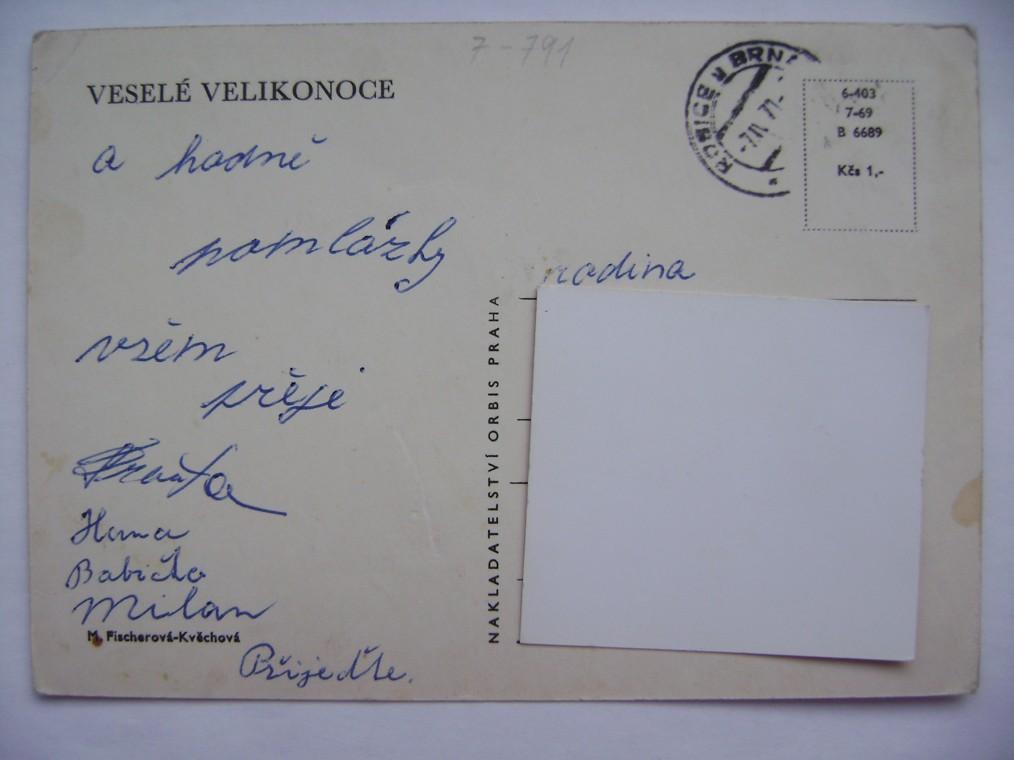 7-791
VESELÉ VELIKONOCE
a hodně
pomlázky
všem
přeje
Hana
Babička
Milan
M. Fischerová-Kvěchová
Přijeďte.
NAKLADATELSTVÍ ORBIS PRAHA
ROSICE U BRNA
6-403
7-69
B 6689
Kčs 1,-
rodina